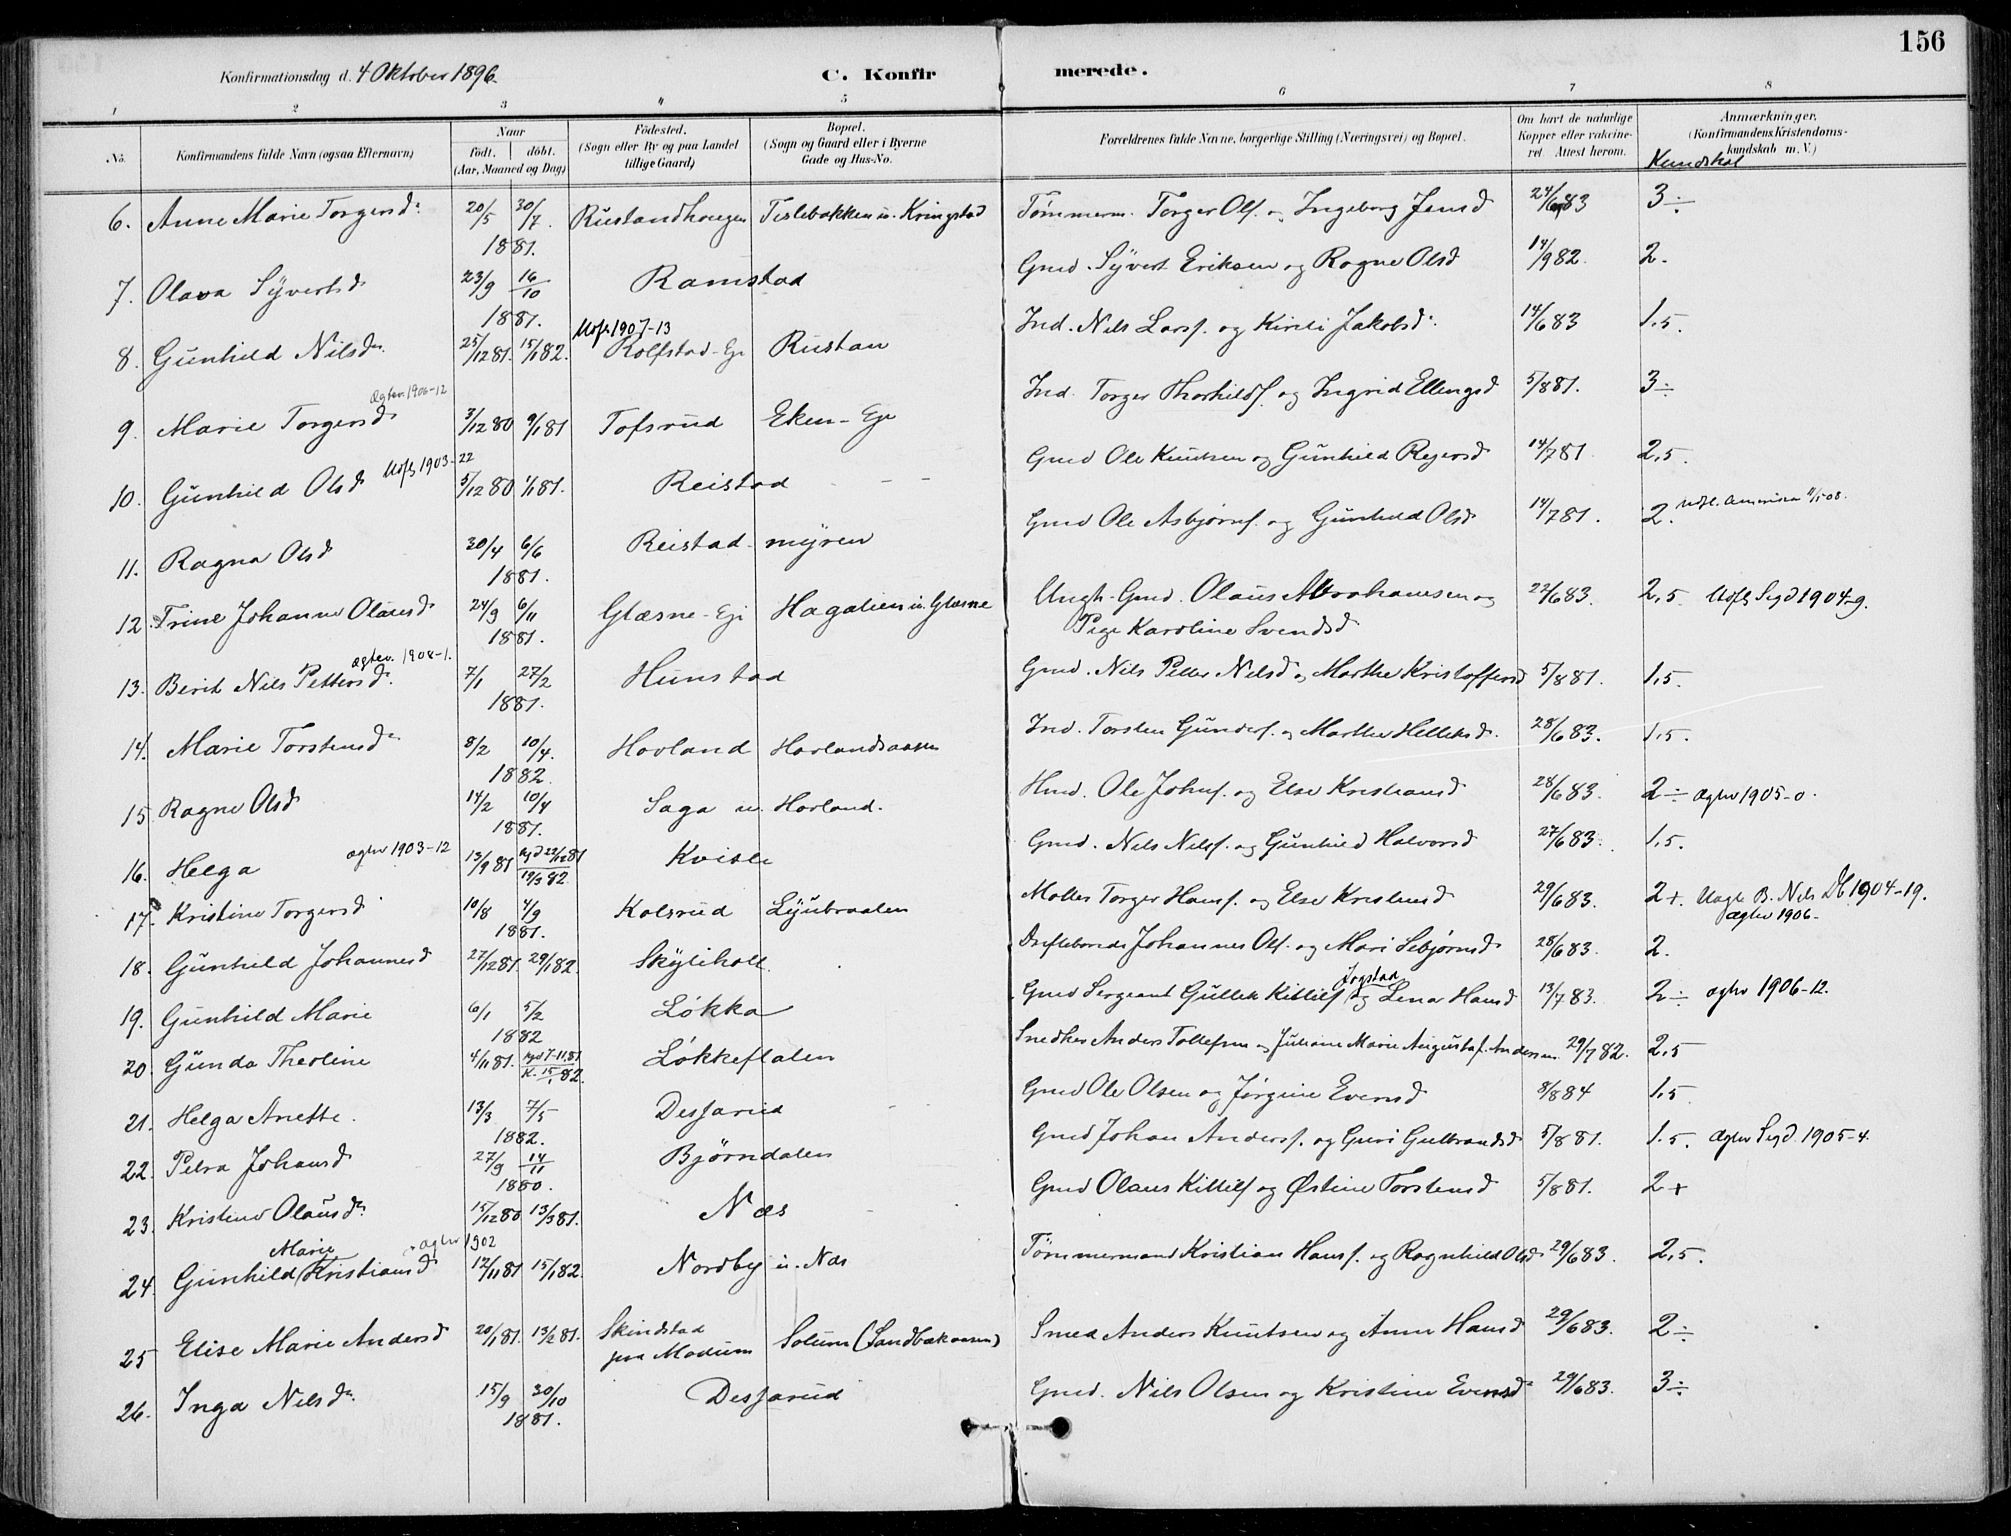 156
Konfirmationsdag d. 4 Oktober 1896. C. Konfirmerede.
1 2 3 4 5 6 7 8
No. Konfirmandens fulde Navn (ogsaa Efternavn) Naar født. døbt. (Aar, Maaned og Dag) Fødested. (Sogn eller By og paa Landet tillige Gaard) Bopæl. (Sogn og Gaard eller i Byerne Gade og Hus-No. Forældrenes fulde Navne, borgerlige Stilling (Næringsvei) og Bopæl. Om havt de naturlige Kopper eller vakcineret Attest herom. Anmærkninger. (Konfirmandens Kristendomskundskab m. V.)
Kundskab
6. Anne Marie Torgersdr 20/5 30/7 1881. Rustandhougen Tislebakken u. Kringstad Tømmerm. Torger Ols. og Ingeborg Jensd 24/6 83 3÷
7. Olava Syvertsd 23/9 16/10 1881. Ramstad Gmd. Syvert Eriksen og Ragne Olsd 14/9 82. 2.
Udfl 1907-13
8. Gunhild Nilsdr. 25/12 81. 15/1 82. Rolfstad-Eje Rustan Ind. Nils Lars. og Kirsti Jakobsdr. 14/6 83 1,5.
Ægtev. 1906-12
9. Marie Torgersdr 3/12 80 9/1 81 Tofsrud Eken-Eje Ind. Torger Thorkilds. og Ingrid Ellingsd 5/8 81. 3÷
Udfl 1903-22
10. Gunhild Olsd 5/12 80 1/1 81. Reistad Gmd Ole Knutsen og Gunhild Reiersd 14/7 81 2,5.
11. Ragna Olsd 30/4 6/6 1881. Reistad-myren Gmd Ole Asbjørns. og Gunhild Olsd 14/7 81. 2. Udfl. Amerika 11/5 08.
12. Trine Johanne Olausd 24/9 6/11 1881. Glæsne-Eje Hagalien u. Glæsne Ungk. Gmd. Olaus Abrahamsen og 22/6 83. 2,5 Udfl Sigd 1904-9.
Pige Karoline Svendsd
ægtev. 1908-1.
13. Berit Nils Pettersd. 7/1 27/2 1881. Hunstad Gmd. Nils Petter Nilsd og Marthe Kristoffersd 5/8 81. 1,5.
14. Marie Torstensdr 8/2 10/4. 1882. Hovland Hovlandsaasen Ind. Torsten Gunders. og Marthe Helleksd. 28/6 83. 1,5.
15 Ragne Olsd 14/2 10/4 1881. Saga u. Hovland. Hmd. Ole Johns. og Else Kristiansd 28/6 83. 2÷ ægtev 1905-0.
16. Helga ægtev 1903-12 13/9 81 Hjd 22/12 81 19/3 82 Kvisle Gmd. Nils Nils. og Gunhild Halvorsd 27/6 83. 1,5.
17. Kristine Torgersd 10/8 4/9 1881. Kolsrud Lyubraaten Møller Torger Hans. og Else Kristensd 29/6 83. 2+. Uægte B. Nils Db 1904-19.
ægtev 1906-
18. Gunhild Johannesd 27/12 81. 29/1 82. Skylihott Johannes Ols. og Mari Sebjørnsd 28/6 83. 2.
19. Gunhild Marie 6/1 5/2 1882 Løkka Gmd Sergeant Gullik Kittils Jogstad og Lena Hansd 13/7 83. 2÷ ægtev 1906-12.
20. Gunda Theoline 4/11 81. hjd 7-11.81 K. 15/1 82. Løkkeflaten Snedker Anders Tollefsen og Juliane Marie Augusta f. Andersen 29/7 82. 2,5
21. Helga Anette. 13/3 7/5 1882. Desserud Gmd Ole Olsen og Jørgine Evensd 8/8 84 1,5
22. Petra Johansd 27/9 14/11 1880. Bjørndalen Gmd Johan Anders. og Guri Gulbrandsd 5/8 81. 1.5. ægtev Sigd. 1905-4.
23. Kristine Olausdr. 15/12 80 13/3 81. Næs Gmd Olaus Kittils og Østine Torstensd 5/8 81. 2+
ægtev 1902
24. Gunhild Marie Kristiansd 12/11 81 15/1 82. Nordby u. Næs Tømmermand Kristian Hans. og Ragnhild Olsd 29/6 83. 2,5.
25 Elise Marie Andersd 20/1 81. 13/2 81. Skindstad paa Modum Solum (Sandbækaasen) Smed Anders Knutsen og Anne Hansd 29/6 83. 2÷
26. Inga Nilsdr. 15/9 30/10 1881. Desserud Gmd. Nils Olsen og Kristine Evensd 29/6 83. 3÷